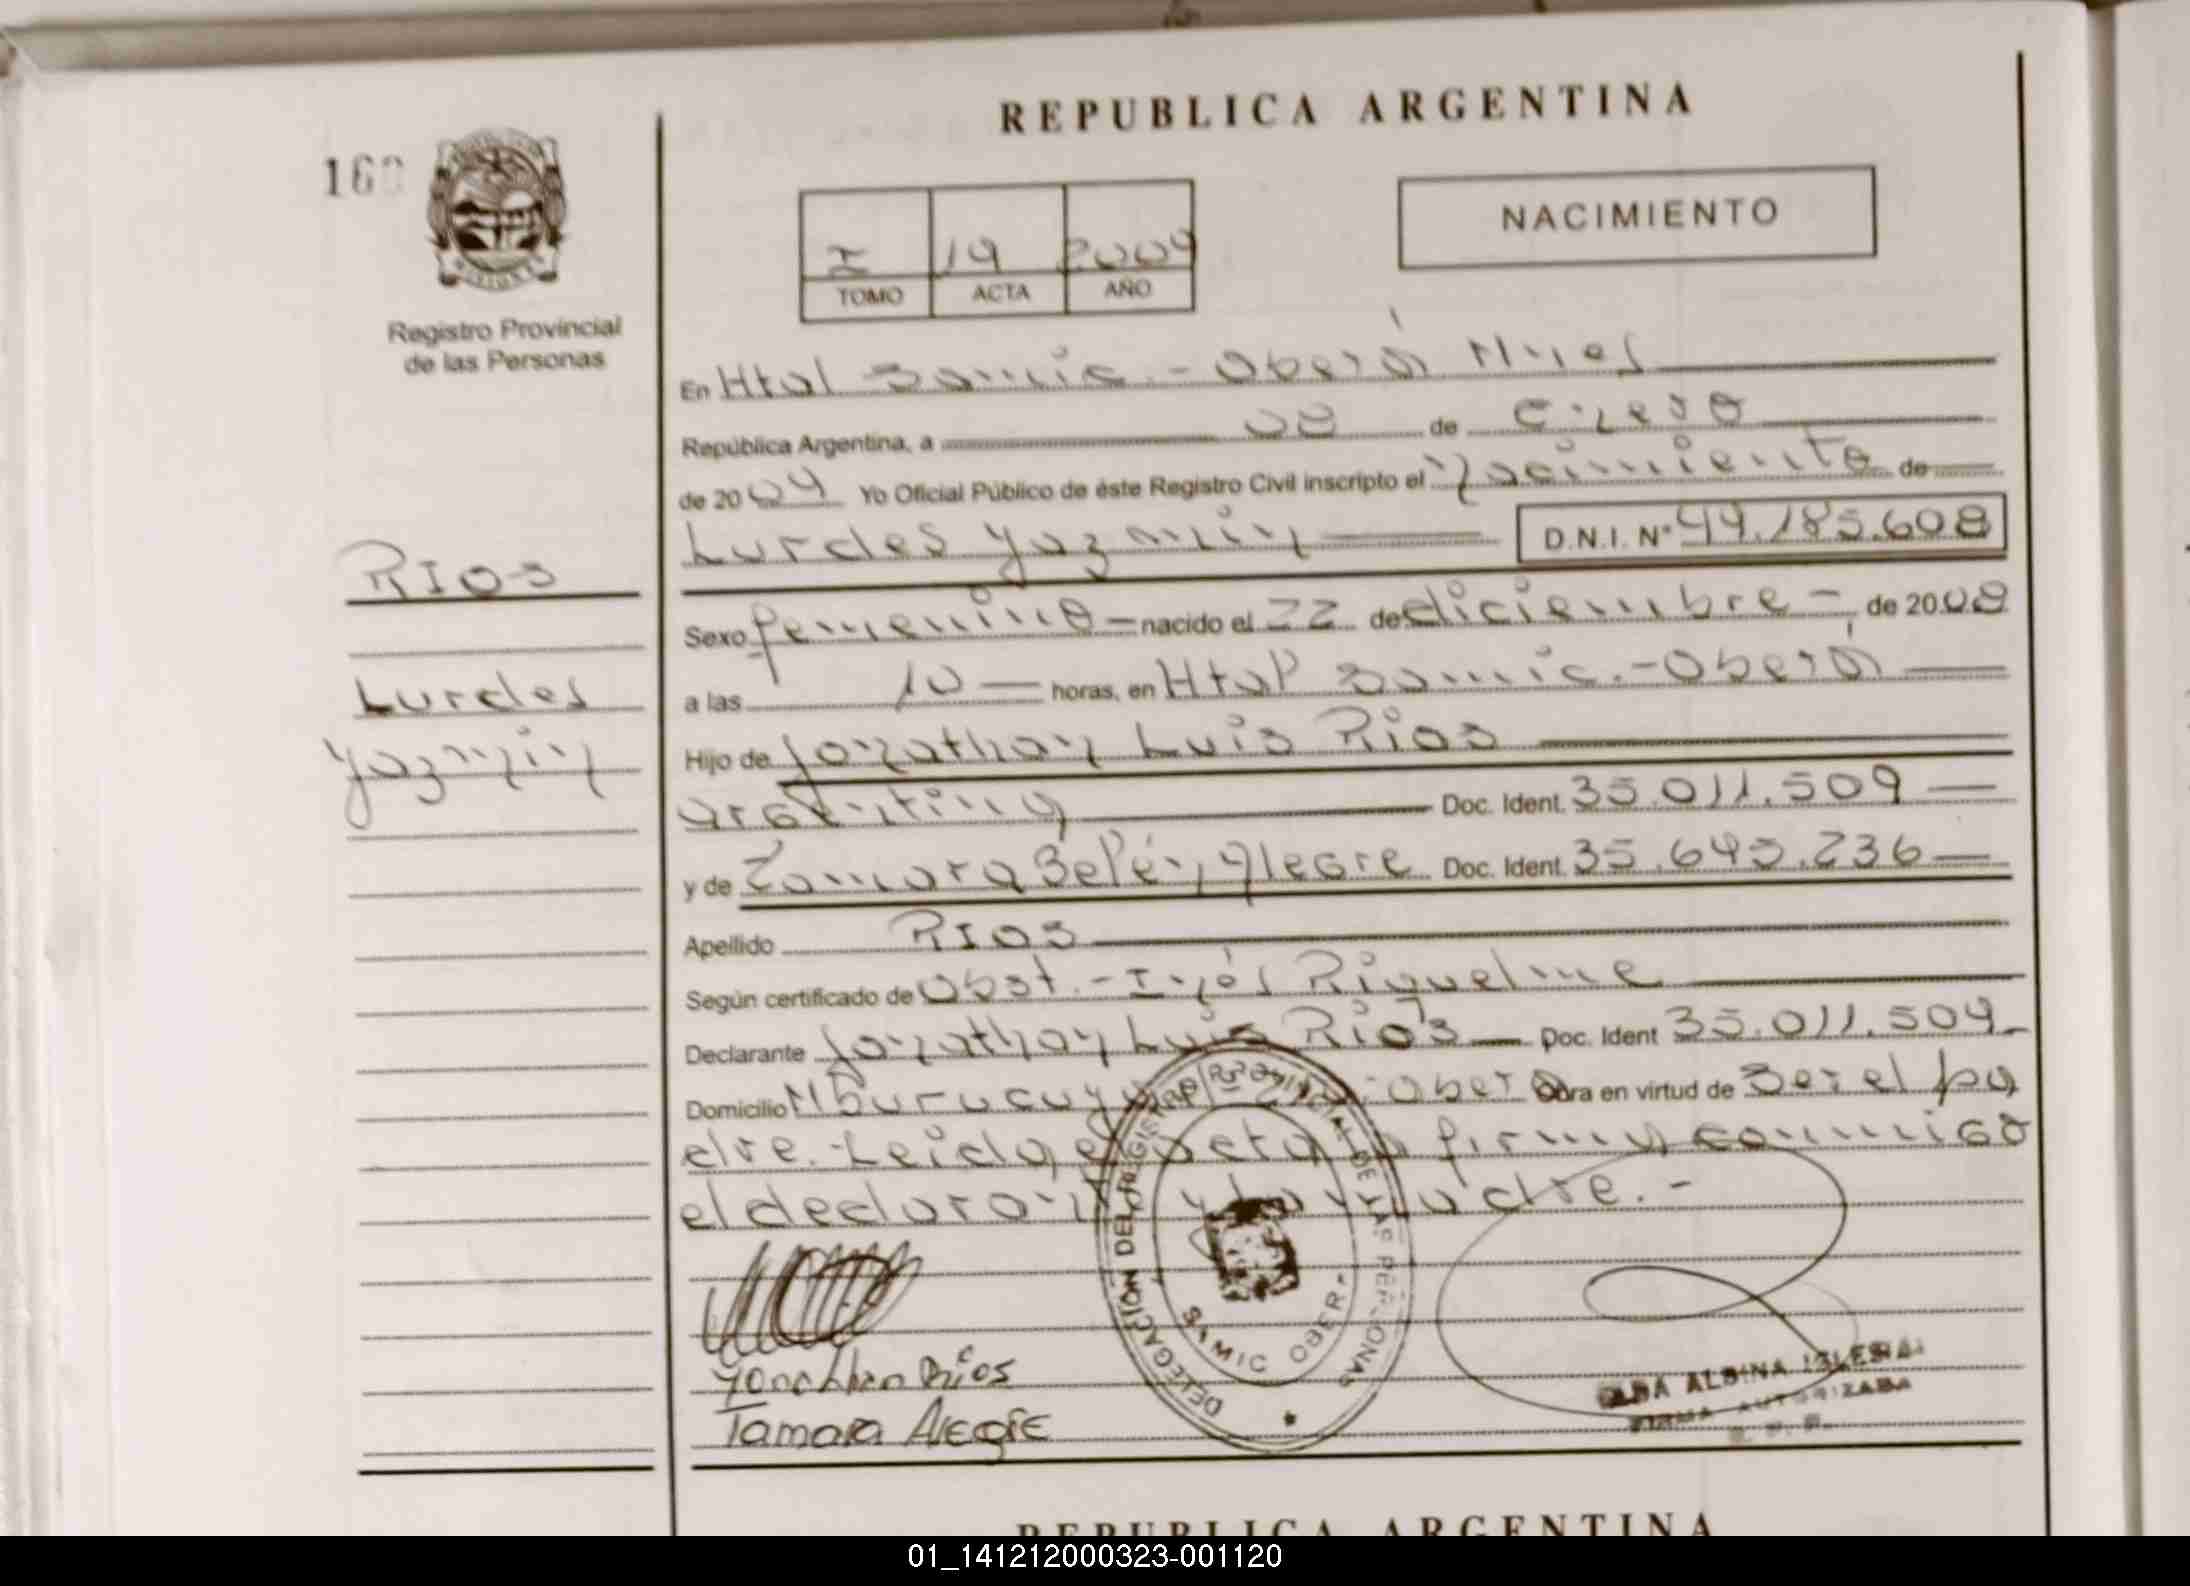 REPUBLICA ARGENTINA
160
NACIMIENTO
I 19 2009
TOMO ACTA AÑO
Registro Provincial
de las Personas
En Htal Samic.- Oberá Mnes
República Argentina, a 08 de enero
de 2009 Yo Oficial Público de éste Registro Civil inscripto el Nacimiento de
Lurdes Yazmin D.N.I. Nº 49.185.608
RIOS
Lurdes
Yazmin
Sexo femenino - nacido el 22 de diciembre - de 2008
a las 10 horas, en Htal Samic.- Oberá
Hijo de Jonathan Luis Rios
argentino Doc. Ident. 35.011.509
y de Tamara Belén Alegre Doc. Ident. 35.695.236
Apellido RIOS
Según certificado de Obst.- Inés Riquelme
Declarante Jonathan Luis Rios Doc. Ident 35.011.509
Domicilio Mburucuyá Oberá Obra en virtud de Ser el pa
dre.- Leida el acta la firma conmigo
el declarante y la madre.-
DELEGACIÓN DEL REGISTRO PROVINCIAL DE LAS PERSONAS
SAMIC OBERA
Yonathan Rios
Tamara Alegre
ELBA ALBINA IGLESIAS
FIRMA AUTORIZADA
REPUBLICA ARGENTINA
01_141212000323-001120